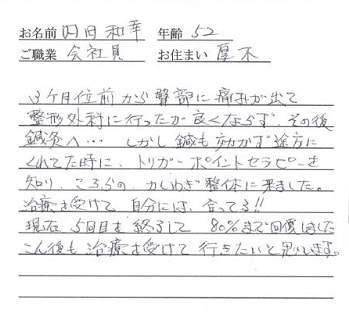 お名前 四日和幸 年齢 52
ご職業 会社員 お住まい 厚木
3ヶ月位前から臀部に痛みが出て
整形外科に行ったが良くならず、その後
鍼灸へ… しかし鍼も効かず途方に
くれてた時に、トリガーポイントセラピーを
知り、こちらの、かしわぎ整体に来ました。
治療を受けて自分には、合ってる!!
現在 5回目を終了して 80%まで回復しました
こん後も治療を受けて行きたいと思います。